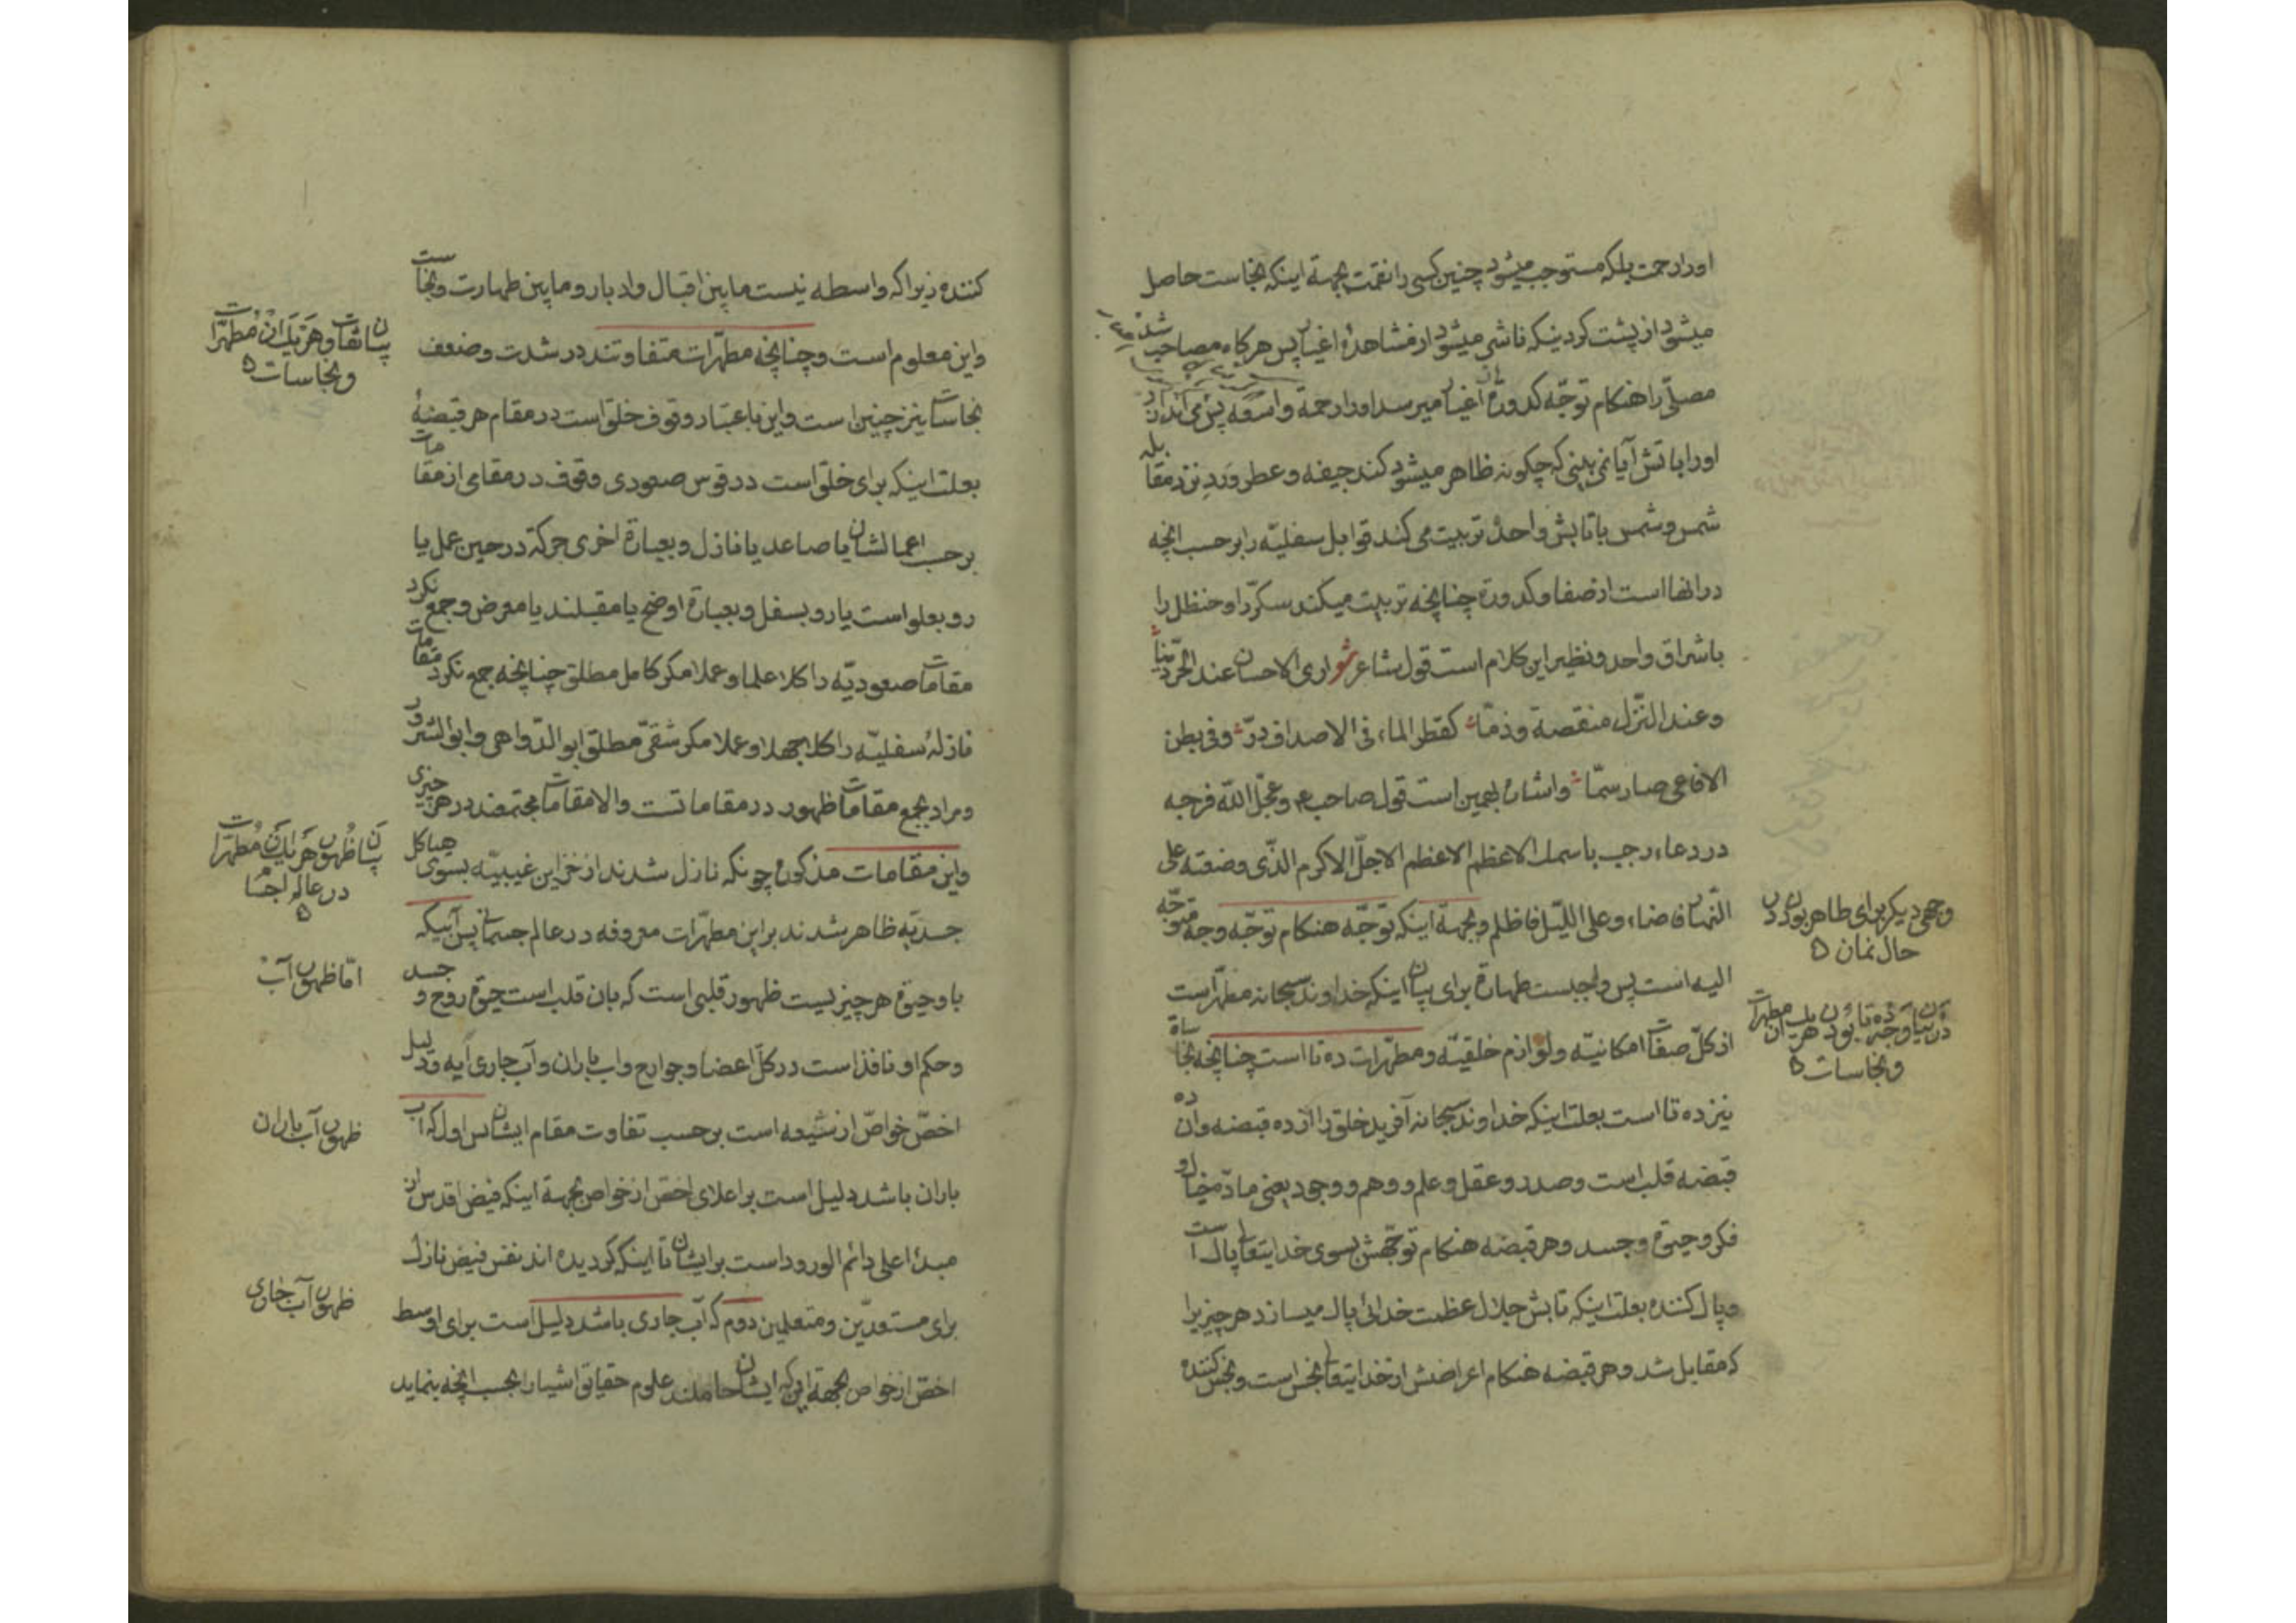 اورا رحمت بلکه مستوجب میشود چنین کسی را نقمت بجهة اینکه نجاست حاصل
میشود از پشت کردنیکه ناشی میشود از مشاهدهٔ اغیار پس هرکاه مصاحب شد
مصلّی را هنکام توجّه کدورة اغیار میرسد اورا رحمة واسعه پس می
اورا باتش آیا نمی بینی که چکونه ظاهر میشود کند جیفه و عطر ورد نزد مقابله
شمس و شمس با تابش واحد تربیت می کند قوابل سفلیّه را بر حسب انچه
در انها است از صفا و کدورة چنانچه تربیت میکند سکّر را و حنظل را
باشراق واحد و نظیر این کلام است قول شاعر شعر اری الاحسان عند الحرّ دیناً
و عند النّزل منقصة و ذمّا کقطر الماء فی الاصداف درّ و فی بطن
الافاعی صار سمّا و اشاره بهمین است قول صاحب ع و عجّل اللّه فرجه
در دعاء رجب باسمك الاعظم الاعظم الاعظم الاجلّ الاکرم الذّی وضعته علی
النّهار فاضاء و علی اللیّل فاظلم و بجهة اینکه توجّه هنکام توجّه وجه متوجّه
الیه است پس واجبست طهارة برای بیان اینکه خداوند سبحانه مطهّر است
از کلّ صفات امکانیّه و لوازم خلقیّه و مطهّرات ده تا است چنانچه نجاسات
نیز ده تا است بعلت اینکه خداوند سبحانه آفرید خلق را از ده قبضه و آن ده
قبضه قلب است و صدر و عقل و علم و وهم و وجود یعنی مادّه و خیال و
فکر و حیوة و جسد و هر قبضه هنکام توجّهش بسوی خدایتعالی پاك است
و پاك کننده بعلت اینکه تابش جلال عظمت خدائی پاك میسازد هر چیزیرا
که مقابل شد و هر قبضه هنکام اعراضش از خدایتعالی نجس است و نجس کننده
وجهی دیکر برای طاهر بودن در
حال نماز
در بیان وجه ده تا بودن هر یك از مطهرات
و نجاسات
کننده زیرا که واسطه نیست مابین اقبال و ادبار و مابین طهارت و نجاست
و این معلوم است و چنانچه مطهّرات متفاوتند در شدت و ضعف
نجاسات نیز چنین است و این باعتبار وقوف خلق است در مقام هر قبضهٔ
بعلت اینکه برای خلق است در قوس صعودی وقوف در مقامی از مقامات
بر حسب اعمالشان یا صاعد یا نازل و بعبارة اخری حرکة در حین عمل یا
رو بعلو است یا رو بسفل و بعبارة اوضح یا مقبلند یا معرض و جمع نکرد
مقامات صعودیّه را کلا علما و عملا مکر کامل مطلق چنانچه جمع نکرد مقامات
نازلهٔ سفلیّه را کلا جهلا و عملا مکر شقیّ مطلق ابو الدّواهی و ابو الشرور
و مراد بجمع مقامات ظهور در مقاماتست والا مقامات مجتمعند در هر چیزی
و این مقامات مذکوره چونکه نازل شدند از خزاین غیبیّه بسوی هیاکل
جسدیّه ظاهر شدند بر این مطهّرات معروفه در عالم جسمانی پس آبیکه
با و حیوة هر چیزیست ظهور قلبی است که بان قلب است حیوة روح و جسد
و حکم او نافذ است در کلّ اعضا و جوارح و اب باران و آب جاری آیه و دلیل
اخصّ خواصّ از شیعه است بر حسب تفاوت مقام ایشان پس اول که آب
باران باشد دلیل است بر اعلای اخصّ از خواصّ بجهة اینکه فیض اقدس از
مبدا اعلی دائم الورود است بر ایشان تا اینکه کردیده اند نفس فیض نازل
برای مستعدّین و متعلمین دوم که آب جاری باشد دلیل است برای اوسط
اخصّ از خواصّ بجهة این که ایشان حاملند علوم حقایق اشیا را بحسب انچه بنماید
بیان تفاوت هر یك از مطهّرات
و نجاسات
بیان ظهور هر یك از مطهّرات
در عالم اجسام
امّا ظهور آب
ظهور آب باران
ظهور آب جاری